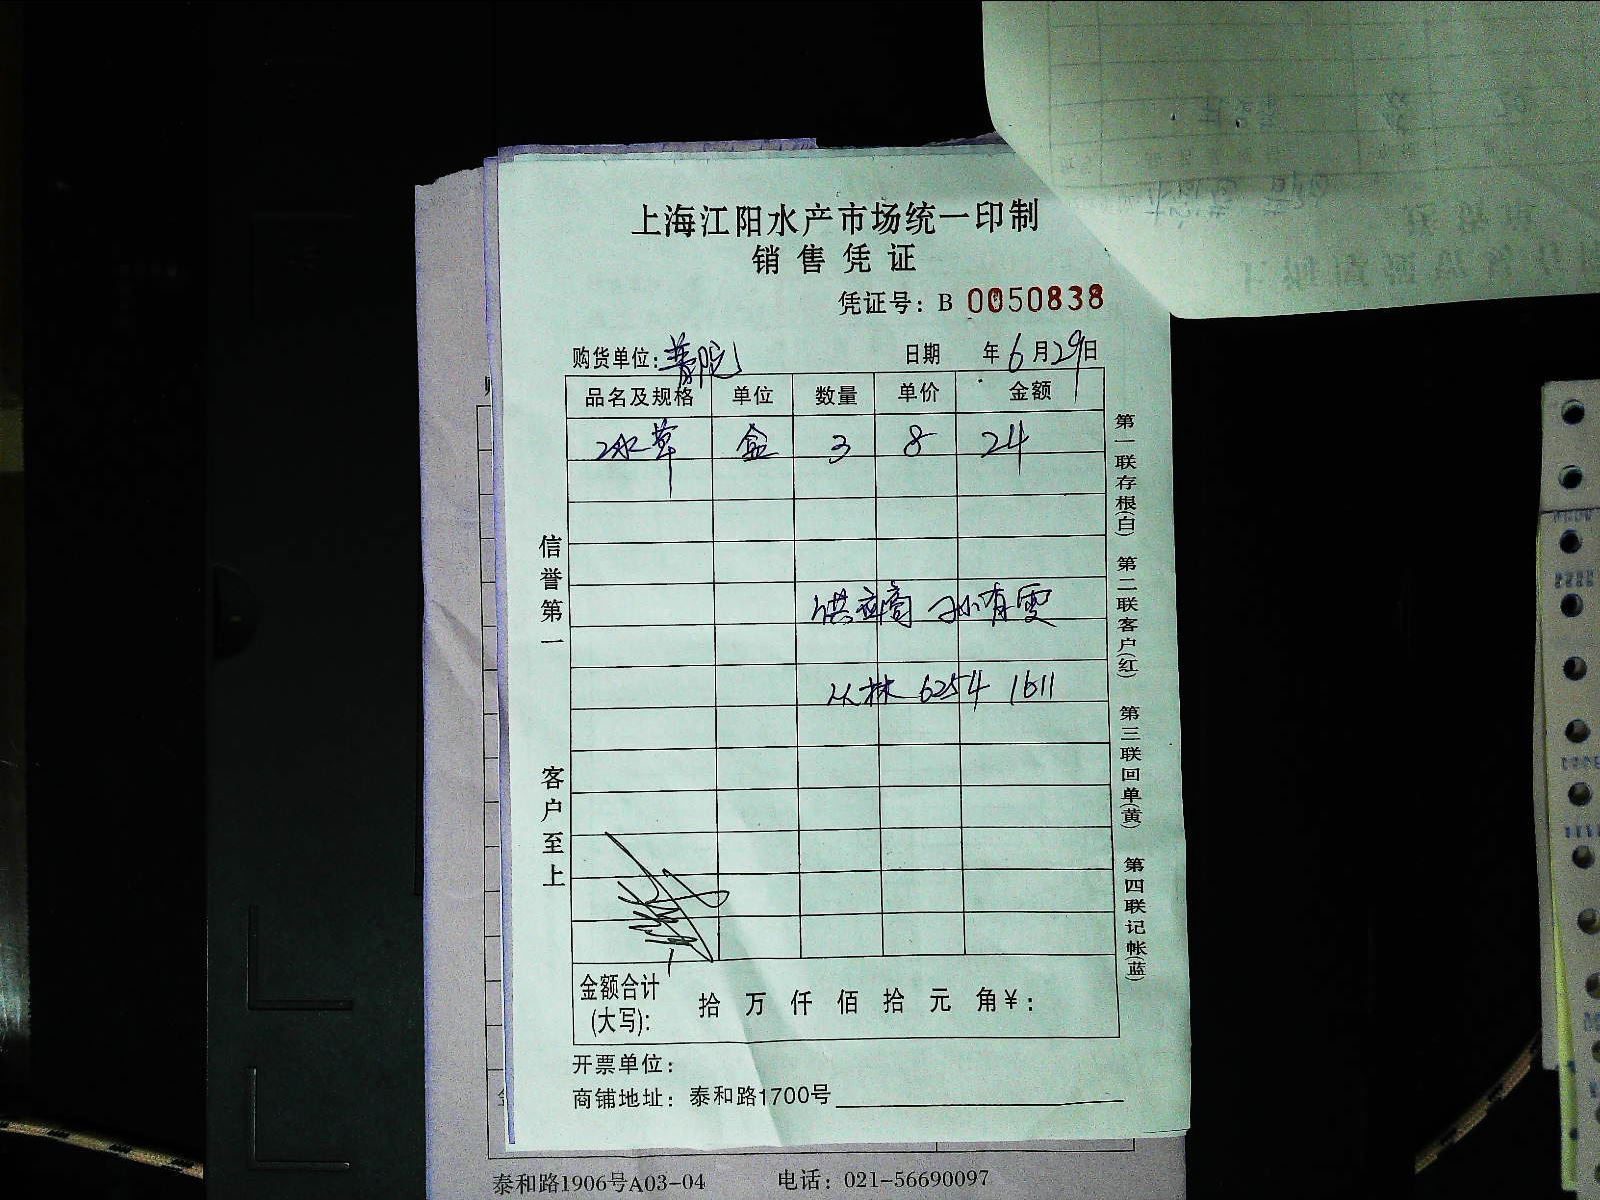 上海江阳水产市场统一印制
销售凭证
凭证号：B 0050838
购货单位：普陀 日期 年6月29日
品名及规格 单位 数量 单价 金额
冰草 盒 3 8 24
供应商 孙有雯
丛林 6254 1611
信誉第一
客户至上
第一联存根(白) 第二联客户(红) 第三联回单(黄) 第四联记帐(蓝)
金额合计(大写)： 拾 万 仟 佰 拾 元 角¥：
开票单位：
商铺地址：泰和路1700号
泰和路1906号A03-04 电话：021-56690097